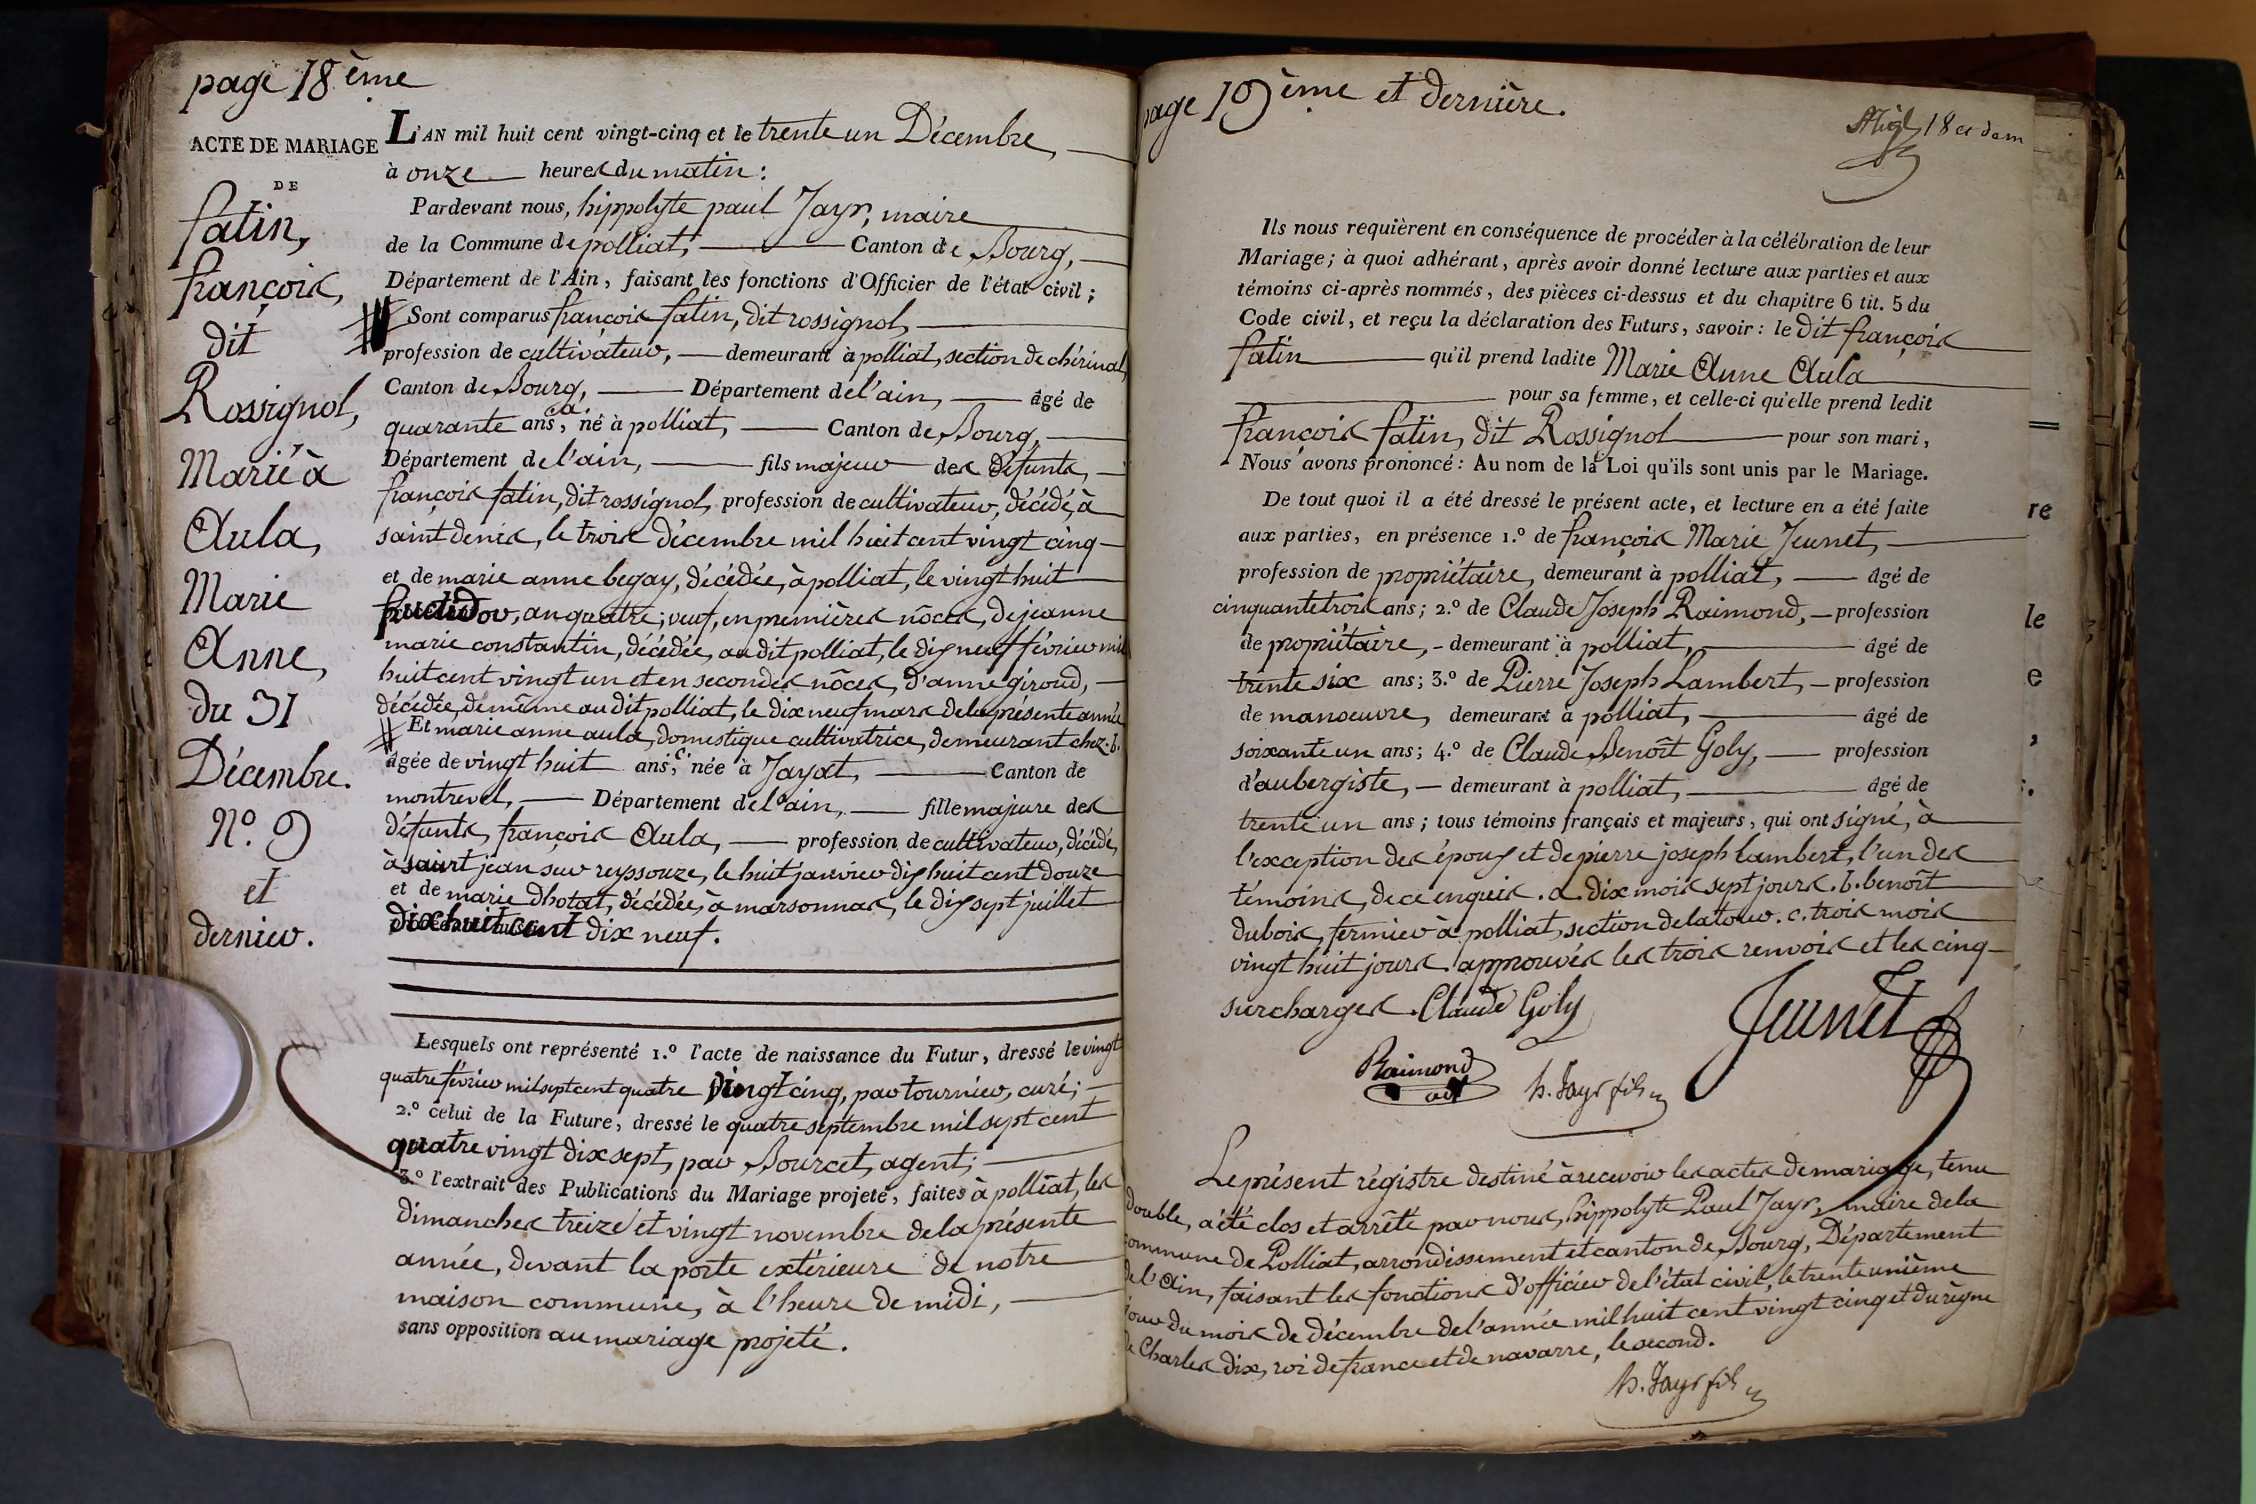 page 18ème
ACTE DE MARIAGE
DE
fatin,
françois,
dit
Rossignol,
Marié à
Aula,
Marie
Anne,
du 31
Décembre.
N.º 9
et
dernier.
L'AN mil huit cent vingt-cinq et le trente un Décembre,
à onze heures du matin :
Pardevant nous, hippolyte paul Jayr, maire
de la Commune de polliat, Canton de Bourg,
Département de l'Ain, faisant les fonctions d'Officier de l'état civil ;
Sont comparus françois fatin, dit rossignol,
profession de cultivateur, demeurant à polliat, section de chérinal,
Canton de Bourg, Département de l'ain, âgé de
quarante ans, a. né à polliat, Canton de Bourg,
Département de l'ain, fils majeur des défunts,
françois fatin, dit rossignol, profession de cultivateur, décédé, à
saint denis, le trois décembre mil huit cent vingt cinq
et de marie anne begay, décédée, à polliat, le vingt huit
fructidor, an quatre ; veuf, en premières nôces, de jeanne
marie constantin, décédée, au dit polliat, le dix neuf février mil
huit cent vingt un et en secondes nôces, d'anne giroud,
décédée, de même au dit polliat, le dix neuf mars de la présente année
Et marie anne aula, domestique cultivatrice, demeurant chez. b.
âgée de vingt huit ans, c. née à Jayat, Canton de
montrevel, Département de l'ain, fille majeure des
défunts, françois Aula, profession de cultivateur, décédé,
à saint jean sur reyssouze, le huit janvier dix huit cent douze
et de marie Dhotat, décédée, à marsonnas, le dix sept juillet
dix huit cent dix neuf.
Lesquels ont représenté 1.º l'acte de naissance du Futur, dressé le vingt
quatre février mil sept cent quatre vingt cinq, par tournier, curé ;
2.º celui de la Future, dressé le quatre septembre mil sept cent
quatre vingt dix sept, par Bourcet, agent ;
3.º l'extrait des Publications du Mariage projeté, faites à polliat, les
dimanches treize et vingt novembre de la présente
année, devant la porte extérieure de notre
maison commune, à l'heure de midi,
sans opposition au mariage projeté.
page 19ème et dernière.
18 et dern
Ils nous requièrent en conséquence de procéder à la célébration de leur
Mariage ; à quoi adhérant, après avoir donné lecture aux parties et aux
témoins ci-après nommés, des pièces ci-dessus et du chapitre 6 tit. 5 du
Code civil, et reçu la déclaration des Futurs, savoir : le dit françois
fatin qu'il prend ladite Marie Anne Aula
pour sa femme, et celle-ci qu'elle prend ledit
françois fatin, dit Rossignol pour son mari,
Nous avons prononcé : Au nom de la Loi qu'ils sont unis par le Mariage.
De tout quoi il a été dressé le présent acte, et lecture en a été faite
aux parties, en présence 1.º de françois Marie Jeunet,
profession de propriétaire, demeurant à polliat, âgé de
cinquante trois ans ; 2.º de Claude Joseph Raimond, profession
de propriétaire, demeurant à polliat, âgé de
trente six ans ; 3.º de Pierre Joseph Lambert, profession
de manoeuvre, demeurant à polliat, âgé de
soixante un ans ; 4.º de Claude Benoît Goly, profession
d'aubergiste, demeurant à polliat, âgé de
trente un ans ; tous témoins français et majeurs, qui ont signé, à
l'exception des époux et de pierre joseph lambert, l'un des
témoins, de ce enquis. a. dix mois sept jours. b. benoît
dubois, fermier à polliat, section de latour. c. trois mois
vingt huit jours. approuvés les trois renvois et les cinq
surcharges. Claude Goly
Jeunet
Raimond
adt
h. Jayr fils
Le présent régistre destiné à recevoir les actes de mariage, tenu
double, a été clos et arrêté par nous, hippolyte Paul Jayr, maire de la
commune de Polliat, arrondissement et canton de Bourg, Département
de l'Ain, faisant les fonctions d'officier de l'état civil, le trente unième
jour du mois de décembre de l'année mil huit cent vingt cinq et du règne
de Charles dix, roi de france et de navarre, le second.
h. Jayr fils
re
le
e